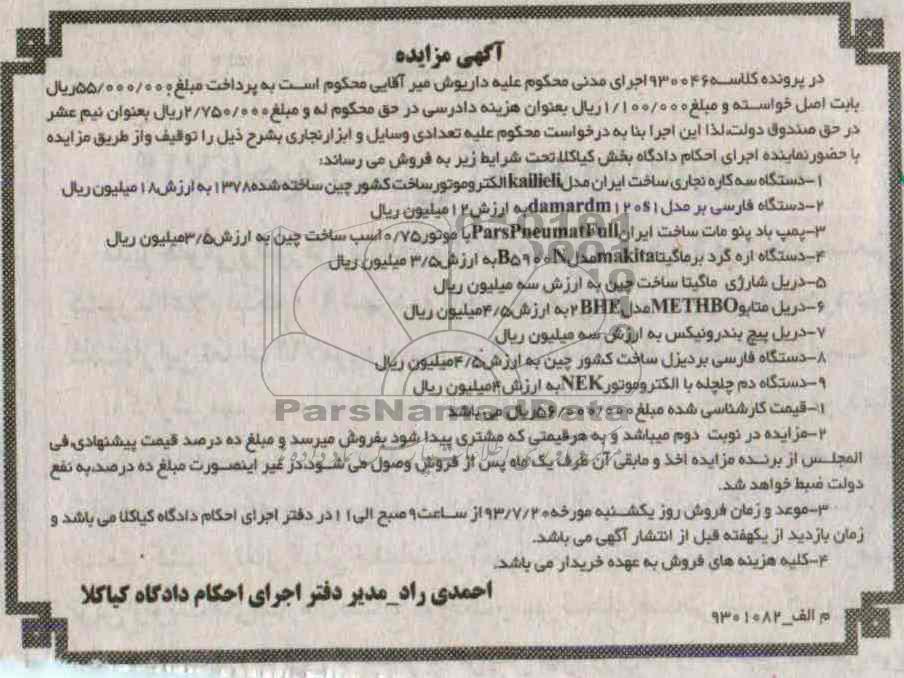 آگهی مزایده
در پرونده کلاسه۹۳۰۰۴۶اجرای مدنی محکوم علیه داریوش میر آقایی محکوم است به پرداخت مبلغ۵۵/۰۰۰/۰۰۰ریال
بابت اصل خواسته و مبلغ۱/۱۰۰/۰۰۰ریال بعنوان هزینه دادرسی در حق محکوم له و مبلغ۲/۷۵۰/۰۰۰ریال بعنوان نیم عشر
در حق صندوق دولت،لذا این اجرا بنا به درخواست محکوم علیه تعدادی وسایل و ابزارنجاری بشرح ذیل را توقیف واز طریق مزایده
با حضورنماینده اجرای احکام دادگاه بخش کیاکلا،تحت شرایط زیر به فروش می رساند:
۱-دستگاه سه کاره نجاری ساخت ایران مدلkailieliالکتروموتورساخت کشور چین ساخته شده۱۳۷۸به ارزش۱۸میلیون ریال
۲-دستگاه فارسی بر مدلdamardm۱۲۰s۱به ارزش۱۲میلیون ریال
۳-پمپ باد پنو مات ساخت ایرانParsPneumatFullبا موتور۰/۷۵اسب ساخت چین به ارزش۳/۵میلیون ریال
۴-دستگاه اره گرد برماگیتاmakitaمدلB۵۹۰۰Nبه ارزش۳/۵ میلیون ریال
۵-دریل شارژی ماگیتا ساخت چین به ارزش سه میلیون ریال
۶-دریل متابوMETHBOمدل۲BHEبه ارزش۴/۵میلیون ریال
۷-دریل پیچ بندرونیکس به ارزش سه میلیون ریال
۸-دستگاه فارسی بردیزل ساخت کشور چین به ارزش۴/۵میلیون ریال
۹-دستگاه دم چلچله با الکتروموتورNEKبه ارزش۴میلیون ریال
۱-قیمت کارشناسی شده مبلغ۵۶/۰۰۰/۰۰۰ریال می باشد
۲-مزایده در نوبت دوم میباشد و به هرقیمتی که مشتری پیدا شود بفروش میرسد و مبلغ ده درصد قیمت پیشنهادی،فی
المجلس از برنده مزایده اخذ و مابقی آن ظرف یک ماه پس از فروش وصول می شود،در غیر اینصورت مبلغ ده درصد،به نفع
دولت ضبط خواهد شد.
۳-موعد و زمان فروش روز یکشنبه مورخه۹۳/۷/۲۰از ساعت۹صبح الی۱۱در دفتر اجرای احکام دادگاه کیاکلا می باشد و
زمان بازدید از یکهفته قبل از انتشار آگهی می باشد.
۴-کلیه هزینه های فروش به عهده خریدار می باشد.
احمدی راد_مدیر دفتر اجرای احکام دادگاه کیاکلا
م الف_۹۳۰۱۰۸۲
ParsNamadData